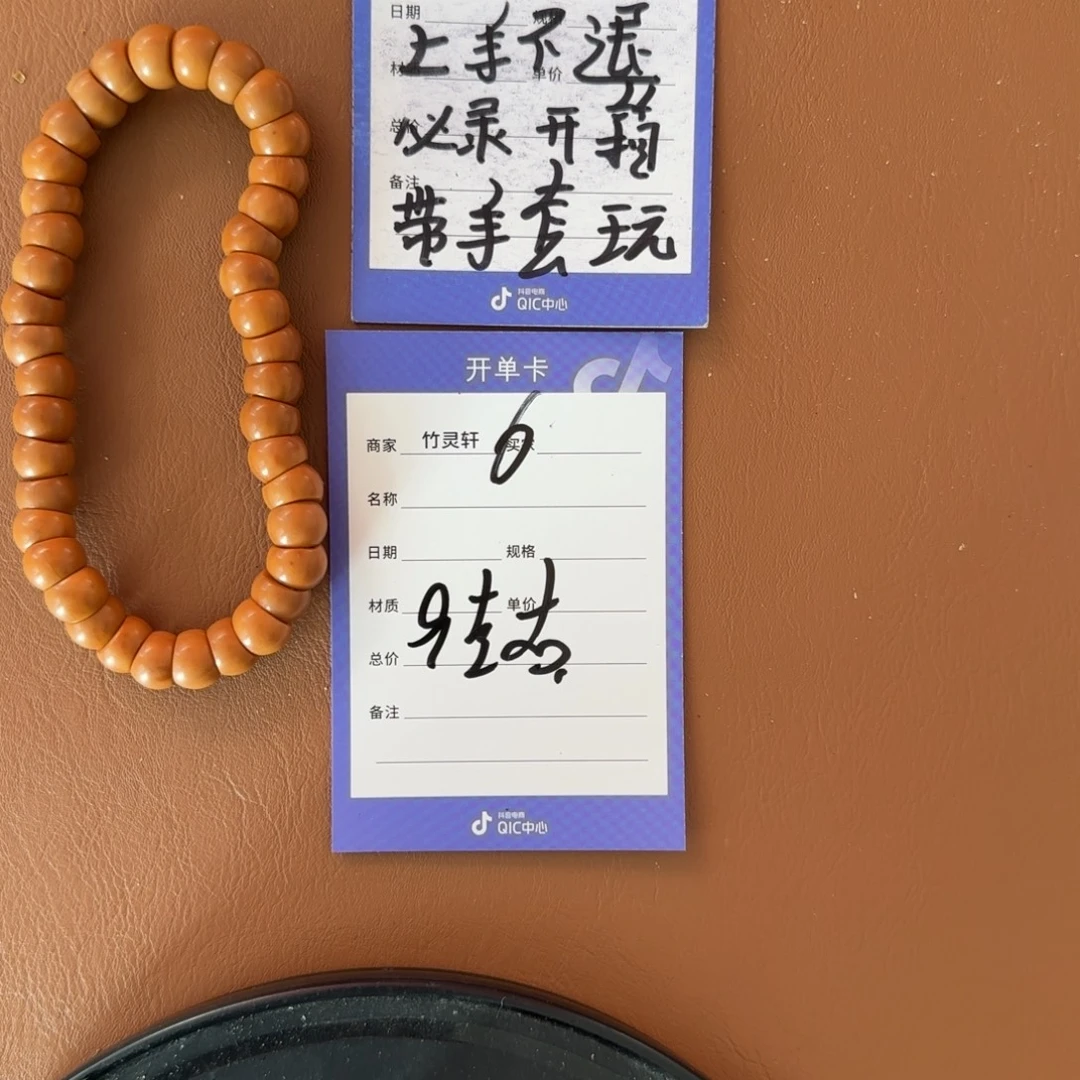 日期 规格
上手不退
材质 单价
总价
必录开箱
备注
带手去玩
抖音电商
QIC中心
开单卡
商家 竹灵轩 买家
6
名称
日期 规格
材质 单价
总价
备注
抖音电商
QIC中心